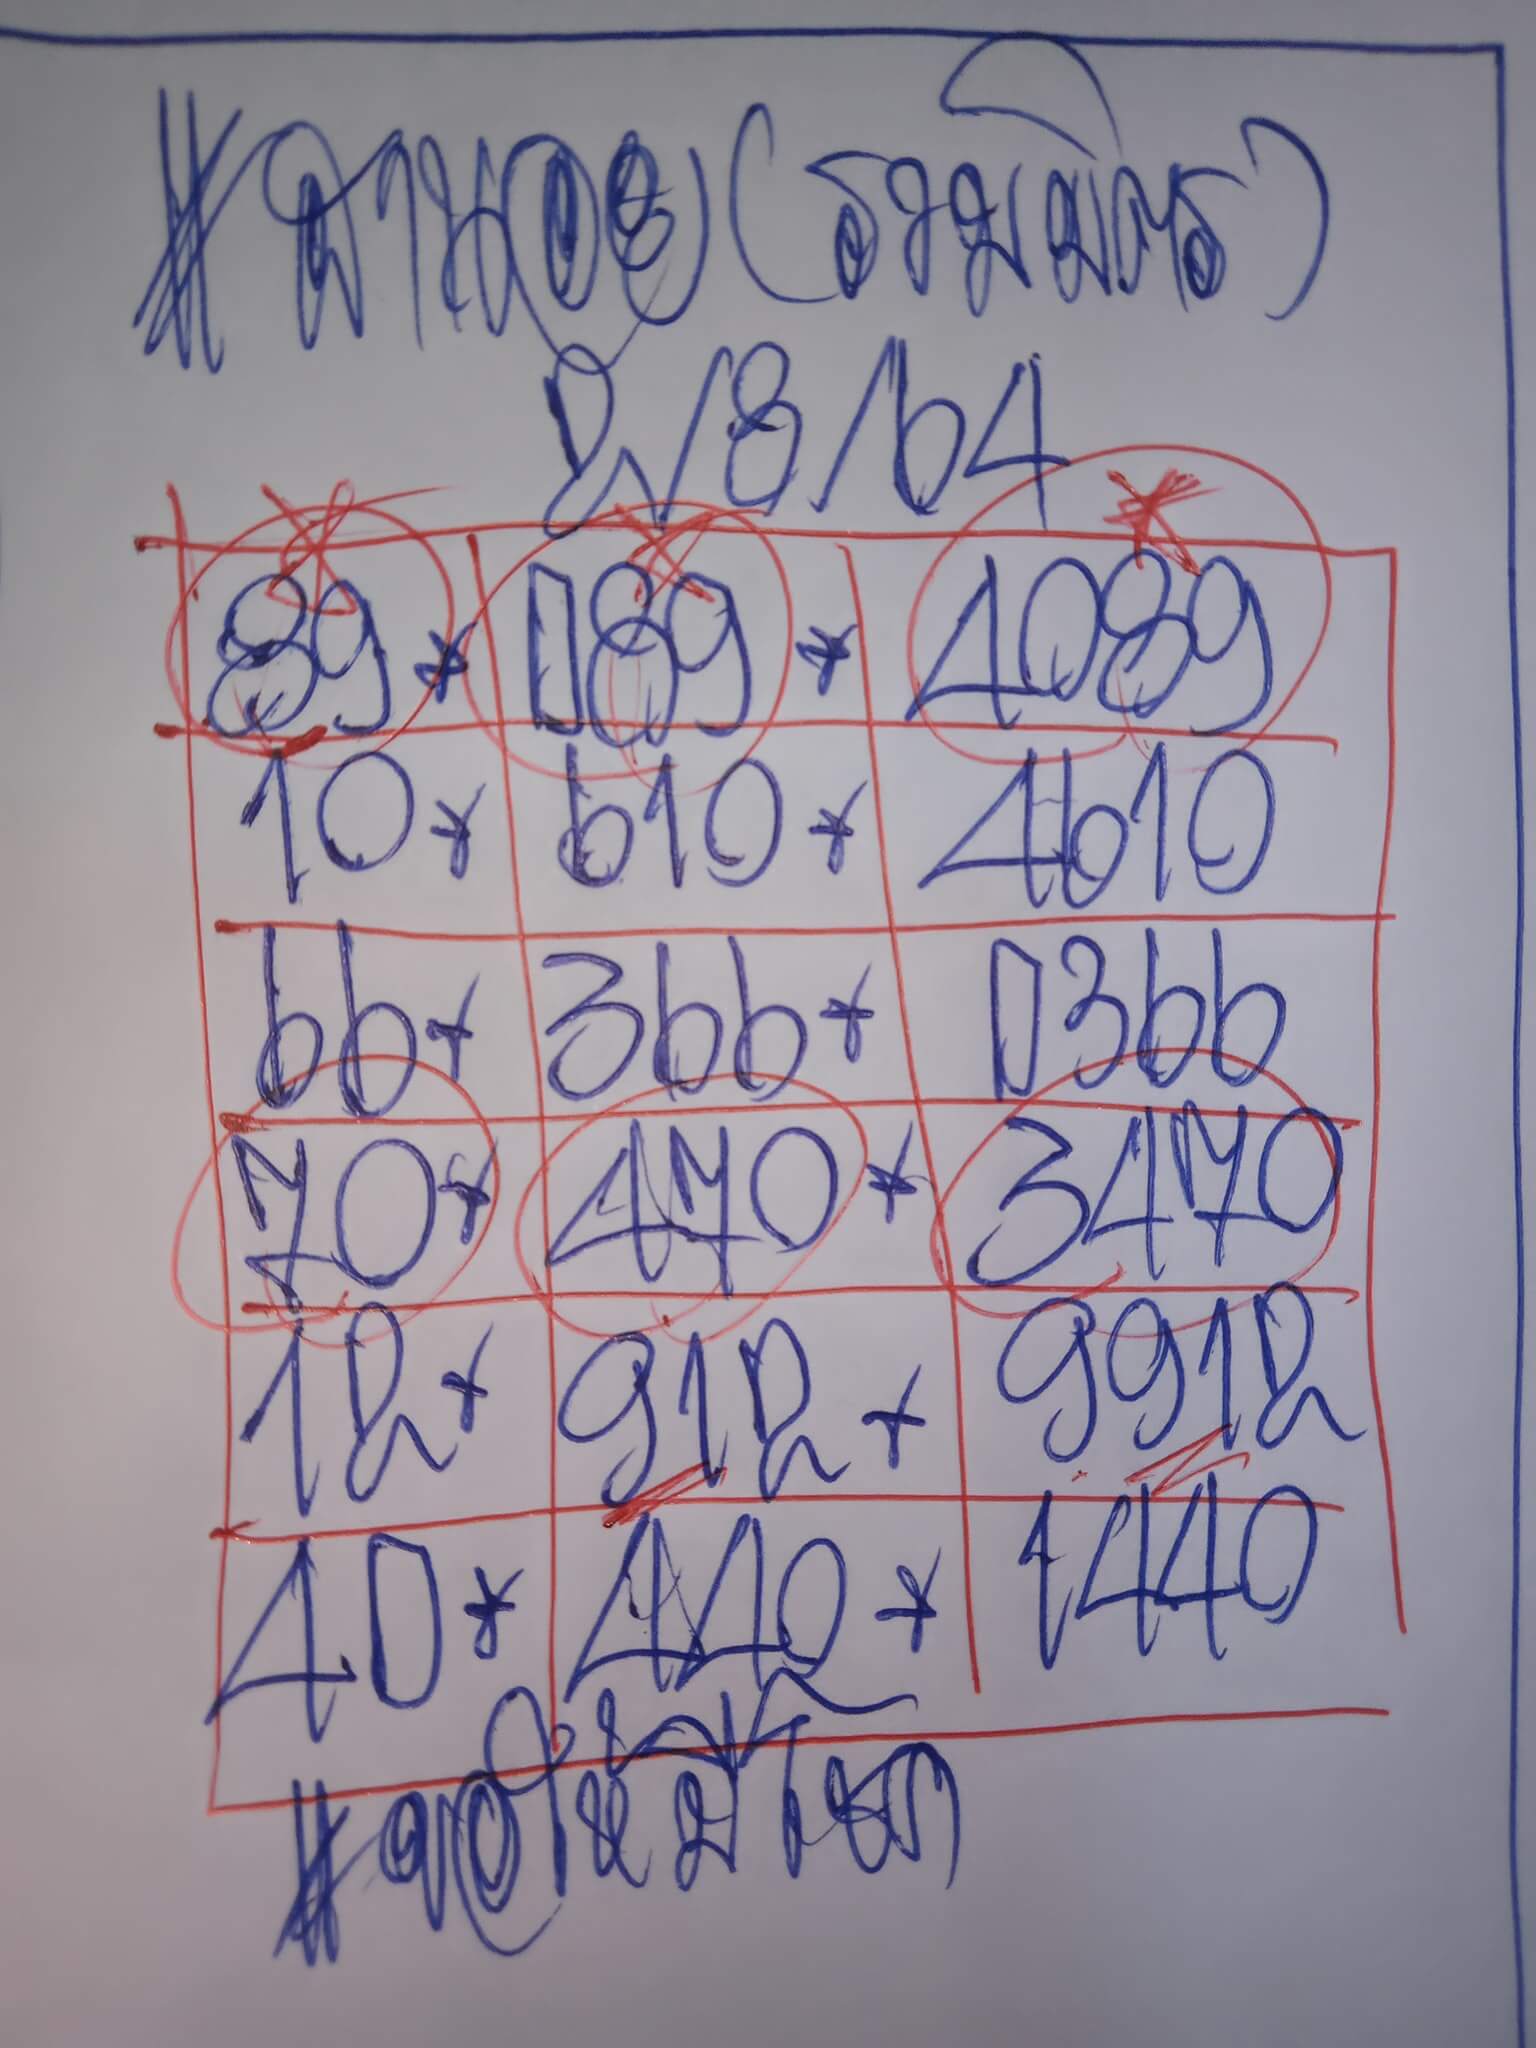 #ฮานอย(รวมมิตร)
2/8/64
89* 089* 4089
10* 610* 4610
66* 366* 0366
70* 470* 3470
12* 912* 9912
40* 440* 1440
#ขอให้มีโชค